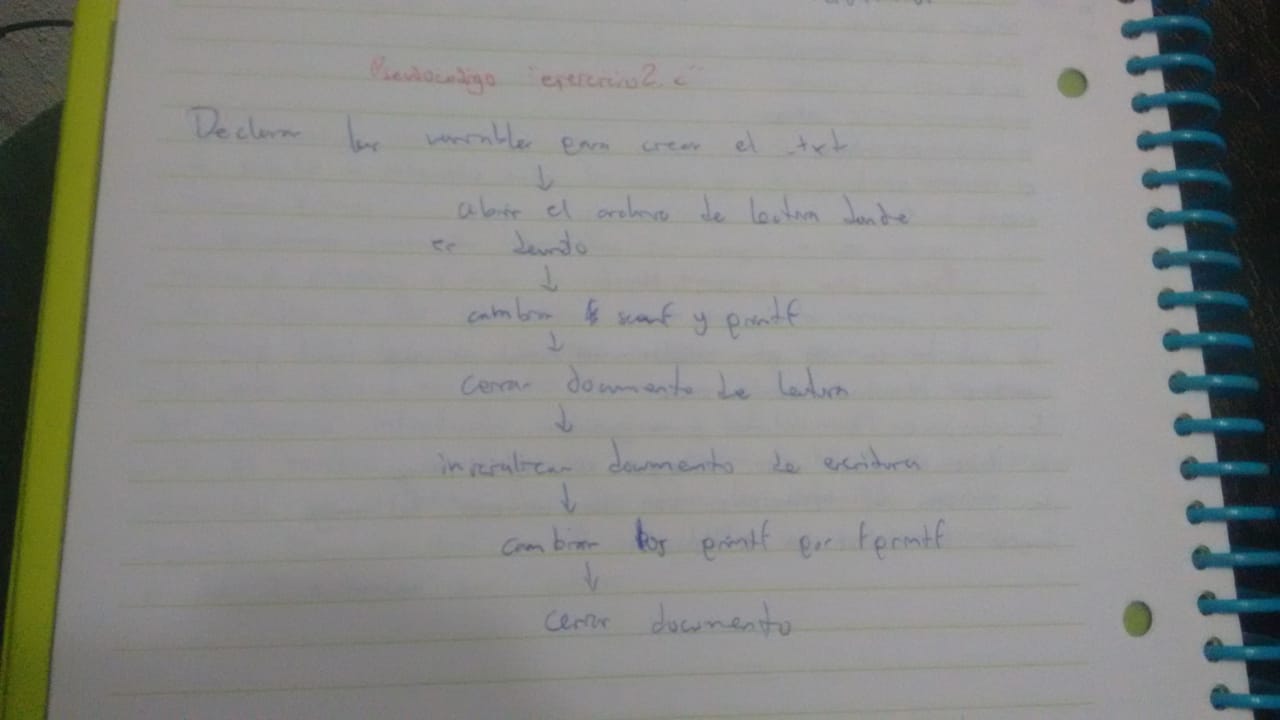 Pseudocodigo "ejercicio2.c"
Declarar las variables para crear el .txt
↓
abrir el archivo de lectura donde
es
↓
cambiar scanf y printf
↓
cerrar documento de lectura
↓
inicializar documento de escritura
↓
cambiar los printf por fprintf
↓
cerrar documento